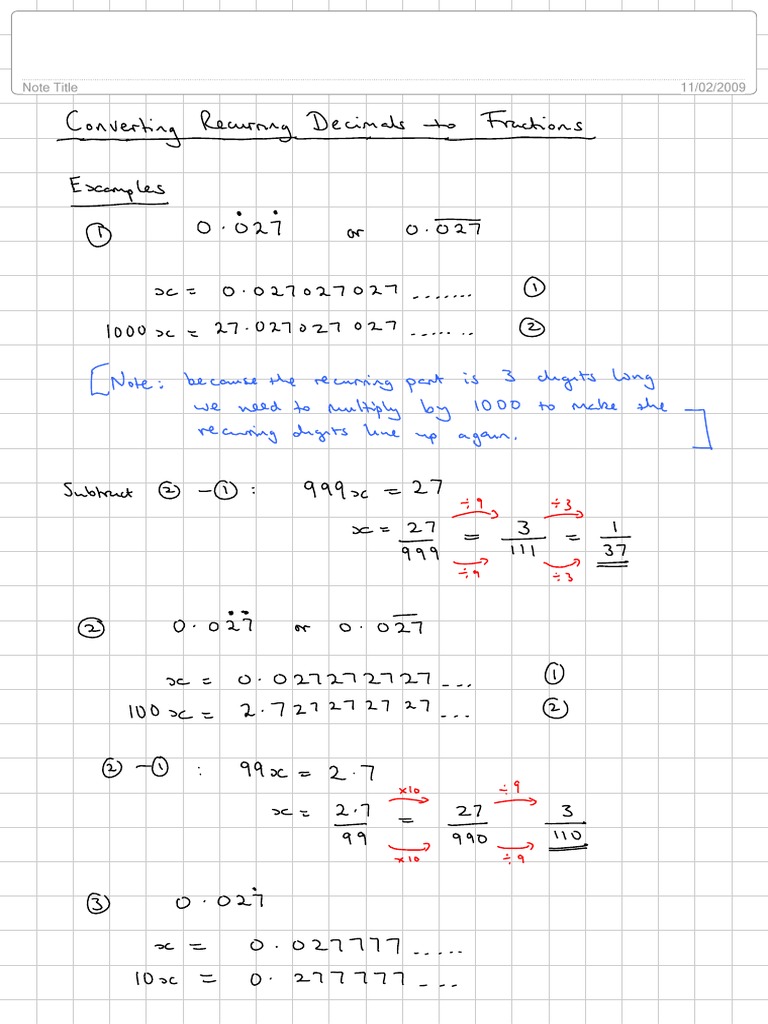 Note Title 11/02/2009
Converting Recurring Decimals to Fractions
Examples
① 0.0̇27̇ or 0.0̅2̅7̅
x = 0.027027027 ....... ①
1000x = 27.027027027 ....... ②
[Note: because the recurring part is 3 digits long
we need to multiply by 1000 to make the
recurring digits line up again.]
Subtract ② - ①: 999x = 27
÷9 ÷3
x = 27/999 = 3/111 = 1/37
÷9 ÷3
② 0.02̇7̇ or 0.02̅7̅
x = 0.027272727... ①
100x = 2.727272727... ②
② - ① : 99x = 2.7
×10 ÷9
x = 2.7/99 = 27/990 3/110
×10 ÷9
③ 0.027̇
x = 0.027777.....
10x = 0.277777...